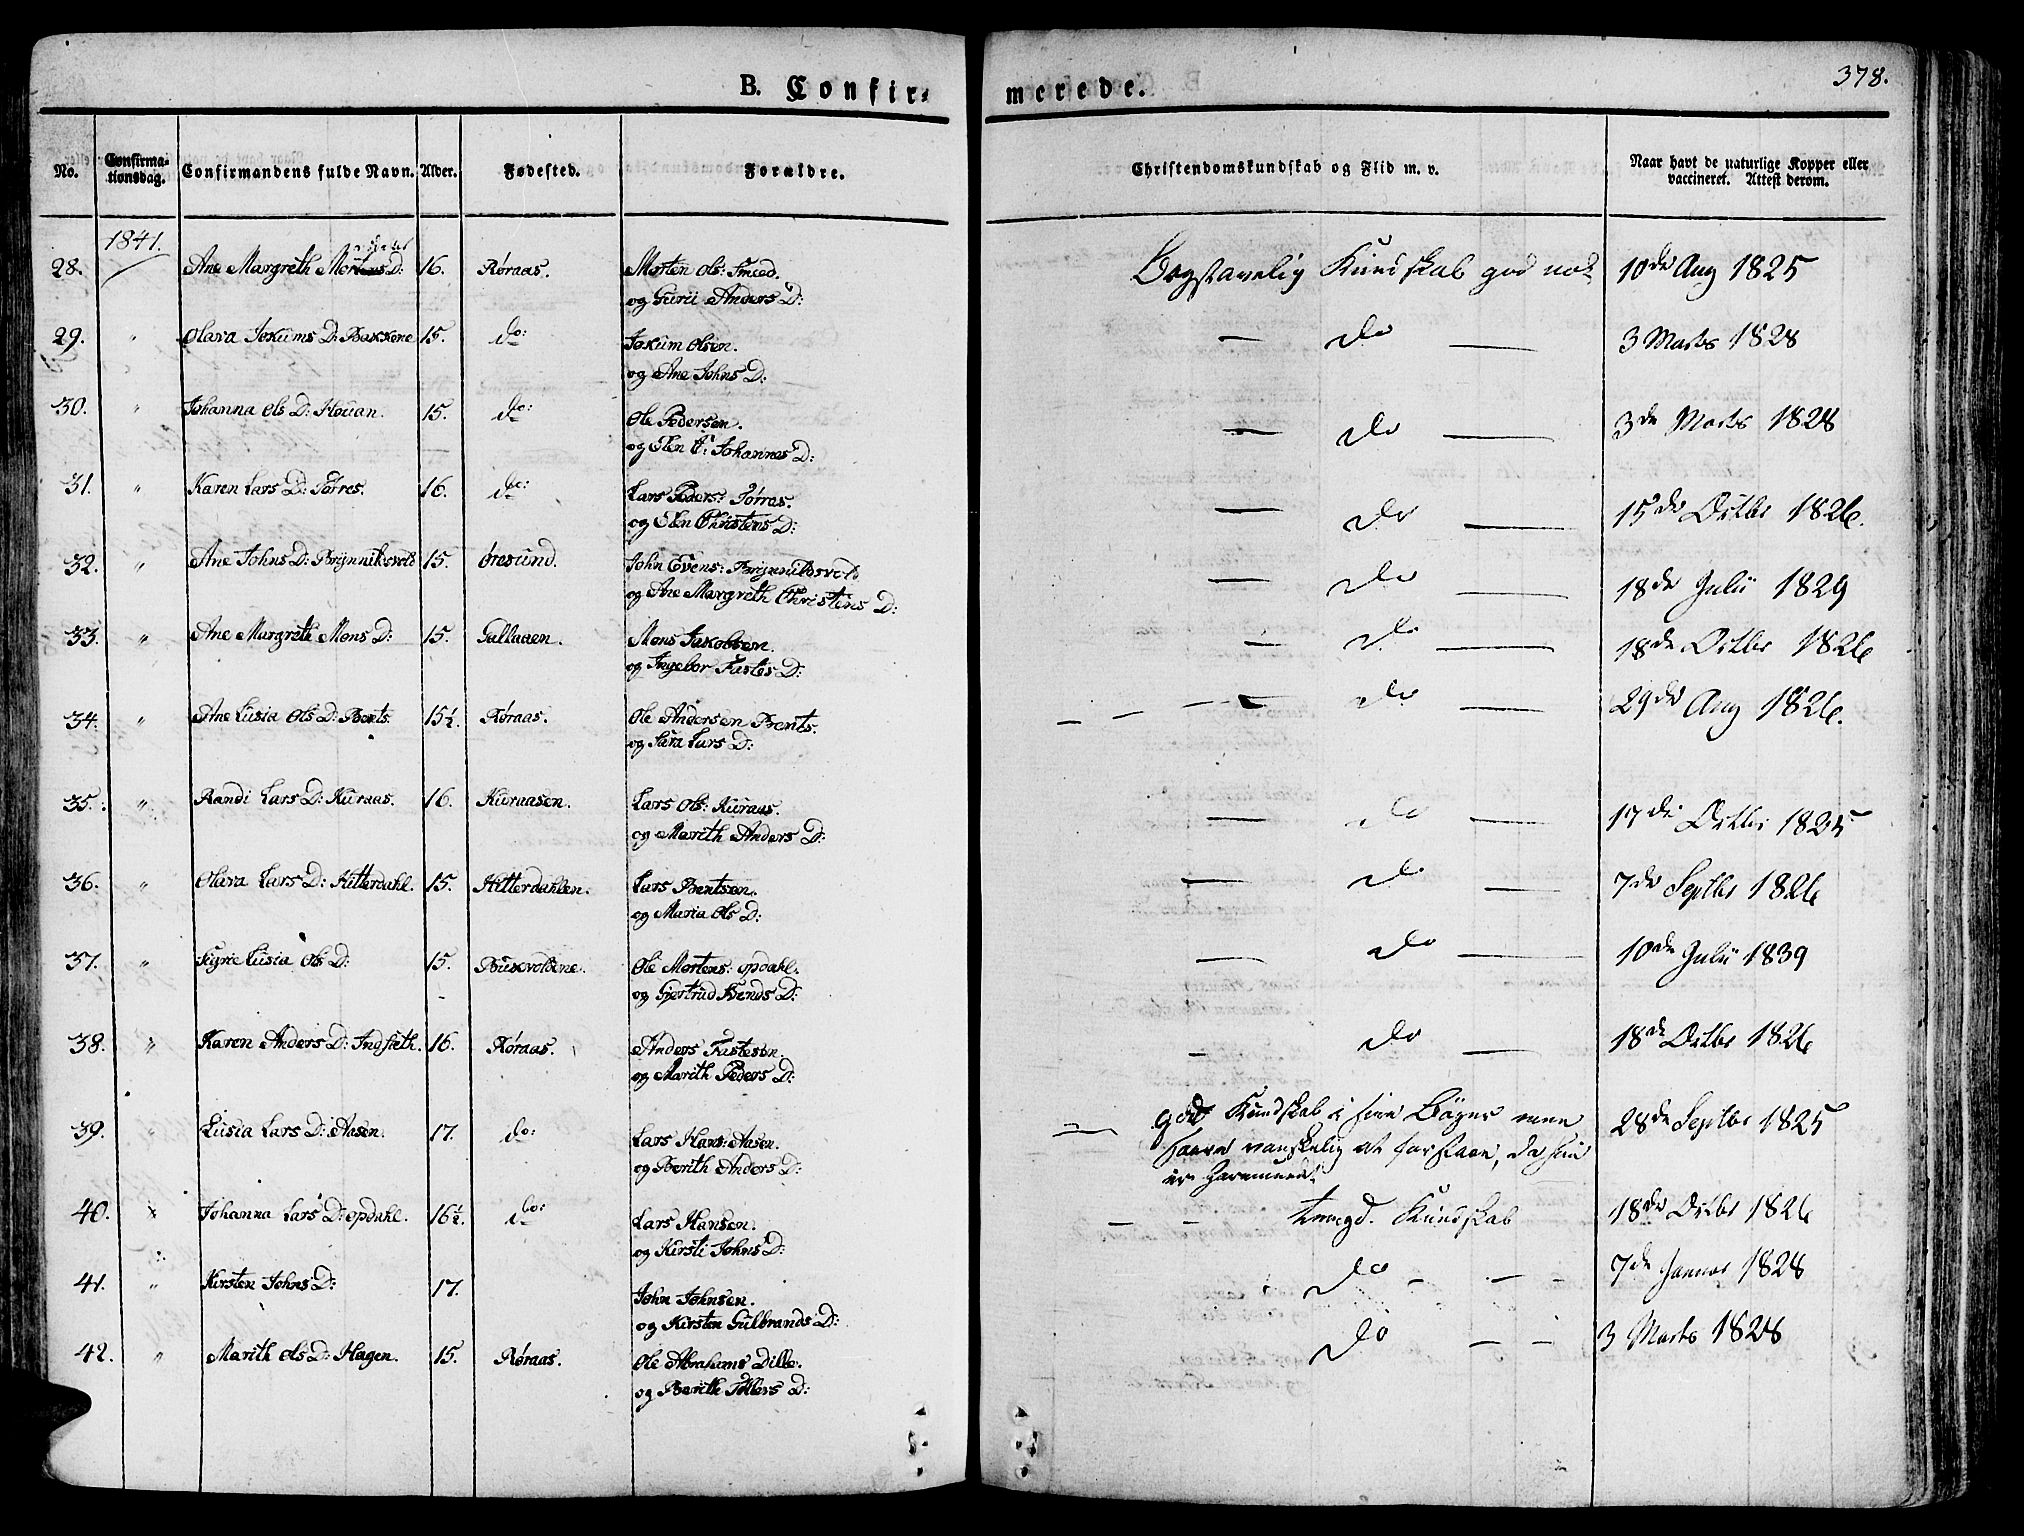 378.
B. Confir- merede.
No. Confirma-tionsdag. Confirmandens fulde Navn. Alder. Fødested. Forældre. Christendomskundskab og Flid m. v. Naar havt de naturlige Kopper eller vaccineret. Attest derom.
1841.
28. Ane Margreth D: 16. Røraas. Morten Ols: Smeed. Bogstavelig Kundskab god nok 10de Aug 1825
og Gurii Anders D:
29. " Olava Jokums D: Bakkene 15. do: Jokum Olsen. — do — 3 Marts 1828
og Ane Johns D:
30. " Johanna Ols D: Houan. 15. do: Ole Pedersen. — do — 3de Marts 1828
og Elen C: Johannes D:
31. " Karen Lars D: Tørres. 16. do: Lars Peders: Tørras. — do — 15de Octbr 1826.
og Elen Christens D:
32. " Ane Johns D: Brynniksvold 15. Øresund. John Evens: Brynnildsvold — do — 18de Julii 1829
og Ane Margreth Christens D:
33. " Ane Margreth Mons D: 15. Gallaaen. Mons Jakobsen. — do — 18de Octbr 1826
og Ingebor Fastes D:
34. " Ane Lusia Ols D: Bents. 15½. Røraas. Ole Andersen Brents. — do — 29de Aug 1826.
og Sara Lars D:
35. " Randi Lars D: Kuraas. 16. Kuraasen. Lars Ols: Kuraas. — do — 17de Octbr 1825
og Marith Anders D:
36. " Olava Lars D: Hitterdahl. 15. Hitterdahlen. Lars Bentsen. — do — 7de Septbr 1826
og Maria Ols D:
37. " Sigrie Lusia Ols D: 15. Bukvoldene. Ole Mortens: Opdahl. — do — 10de Julii 1839
og Gjertrud Bends D:
38. " Karen Anders D: Indseth. 16. Røraas. Anders Fastesen. — do — 18de Octbr 1826
og Marith Peders D:
39. " Lusia Lars D: Aasen. 17. do: Lars Hans: Aasen. god Kundskab i sine Bøger men 28de Septbr 1825
og Berith Anders D: vanskelig at forstaae, da hun
er
40. " Johanna Lars D: Opdahl. 16½. do: Lars Hansen. Kundskab 18de Octbr 1826
og Kirsti Johns D:
41. " Kirsten Johns D: 17. John Johnsen. do — — — 7de Januar 1828
og Kirsten Gulbrands D:
42. " Marith Ols D: Hagen. 15. Røraas. Ole Abrahams Dille. do — — 3 Marts 1828
og Berith Tøllers D: